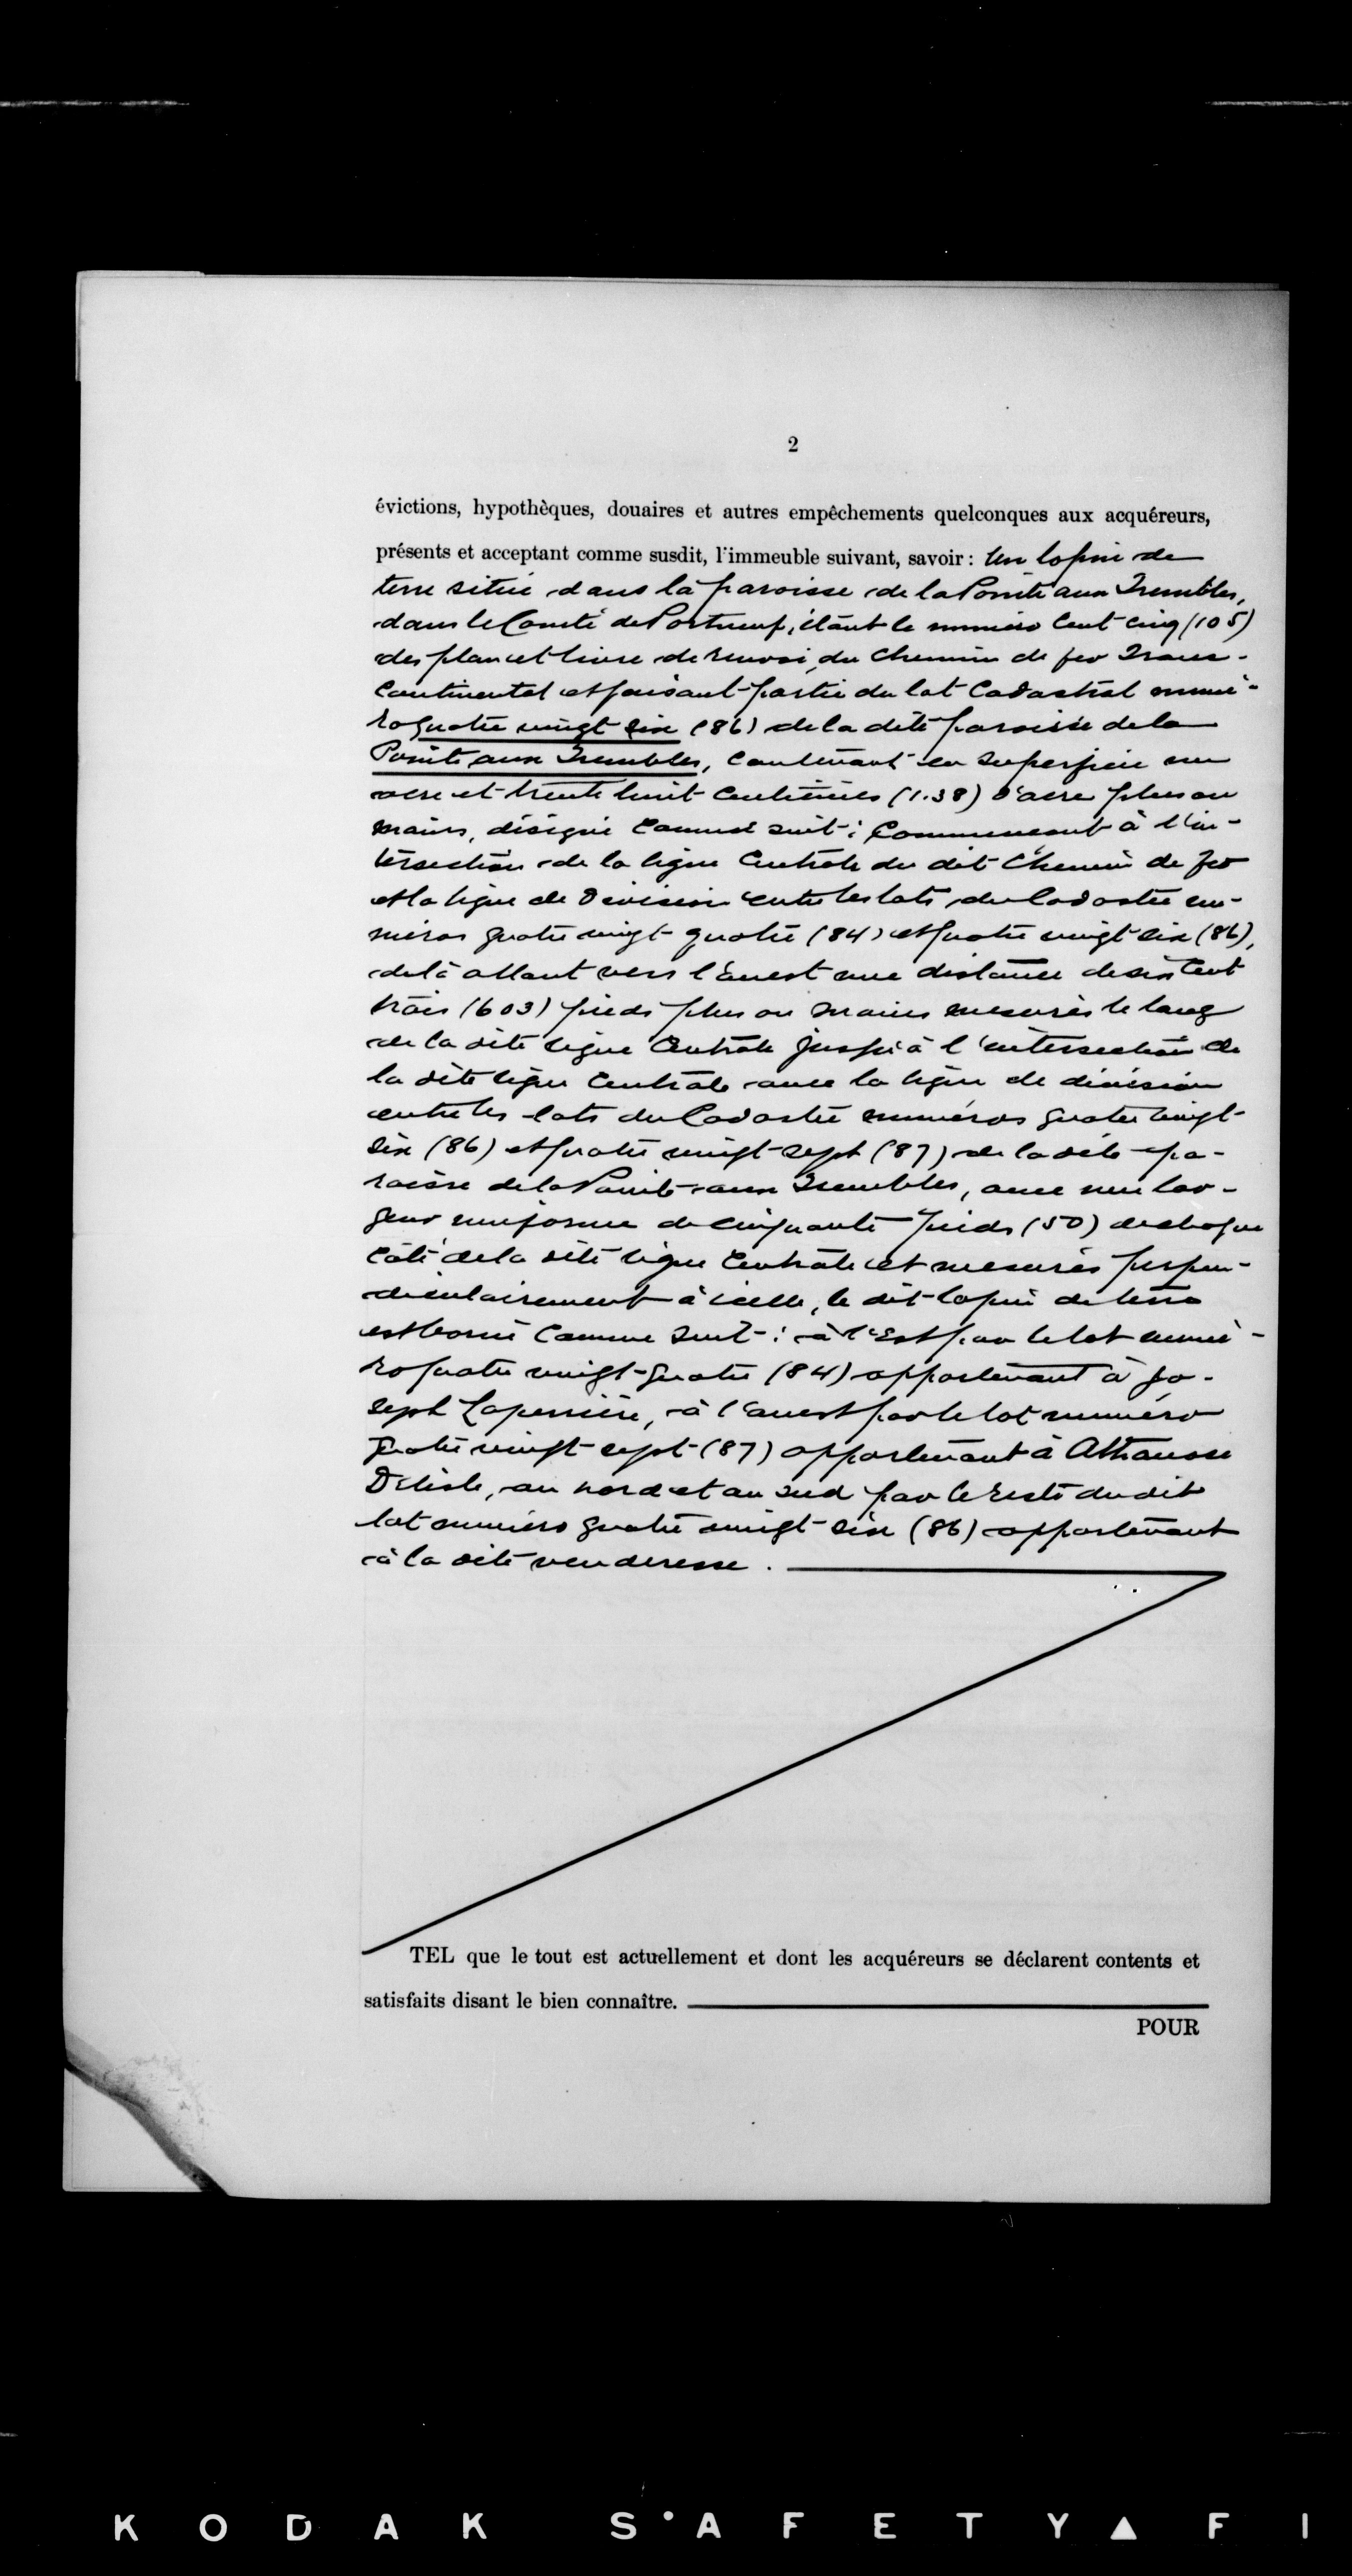 2
évictions, hypothèques, douaires et autres empêchements quelconques aux acquéreurs,
présents et acceptant comme susdit, l'immeuble suivant, savoir : Un lopin de
terre situé dans la paroisse de la Pointe aux Trembles,
dans le Comté de Portneuf, étant le numéro Cent cinq (105)
des plan et livre de renvoi du chemin de fer Trans-
continental et faisant partie du lot Cadastral numé-
ro quatre vingt six (86) de la dite paroisse de la
Pointe aux Trembles, contenant en superficie un
acre et trente huit centièmes (1.38) d'acre plus ou
moins, désigné comme suit : Commençant à l'in-
tersection de la ligne Centrale du dit Chemin de fer
et la ligne de Division entre les lots du Cadastre nu-
méros quatre vingt quatre (84) et quatre vingt six (86),
de là allant vers l'ouest une distance de six Cent
trois (603) pieds plus ou moins mesurés le long
de la dite ligne Centrale jusqu'à l'intersection de
la dite ligne Centrale avec la ligne de division
entre les lots du Cadastre numéros quatre vingt
six (86) et quatre vingt sept (87) de la dite pa-
roisse de la Pointe aux Trembles, avec une lar-
geur uniforme de cinquante pieds (50) de chaque
côté de la dite ligne Centrale et mesurés perpen-
diculairement à icelle, le dit lopin de terre
est borné comme suit : à l'Est par le lot numé-
ro quatre vingt quatre (84) appartenant à Jo-
seph Laperrière, à l'ouest par le lot numéro
quatre vingt sept (87) appartenant à Athanase
Delisle, au nord et au sud par le reste du dit
lot numéro quatre vingt six (86) appartenant
à la dite venderesse.
TEL que le tout est actuellement et dont les acquéreurs se déclarent contents et
satisfaits disant le bien connaître.
POUR
KODAK SAFETY▲FI